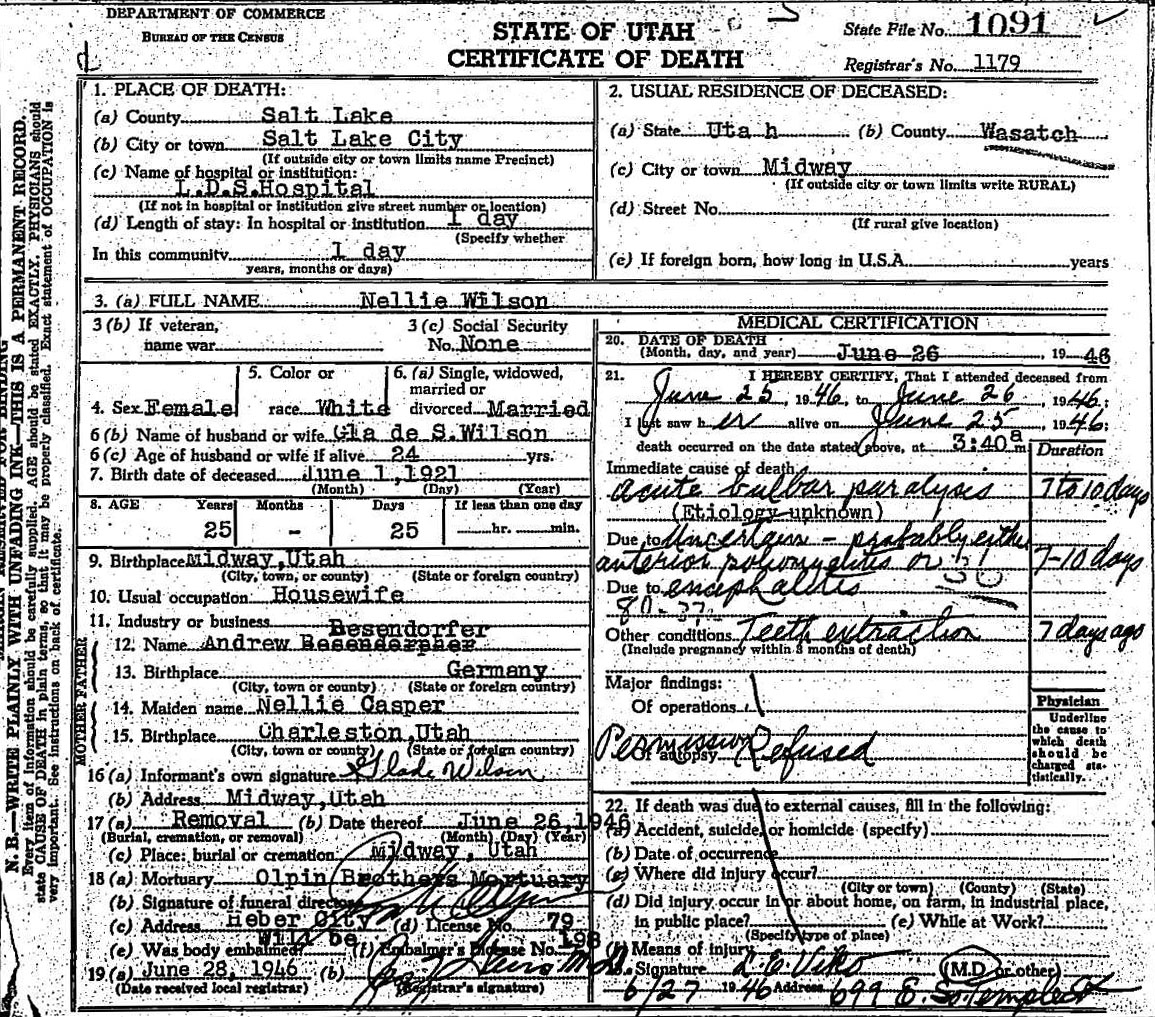 DEPARTMENT OF COMMERCE
BUREAU OF THE CENSUS
STATE OF UTAH
CERTIFICATE OF DEATH
State File No. 1091
Registrar's No. 1179
N. B.—WRITE PLAINLY WITH UNFADING INK—THIS IS A PERMANENT RECORD.
Every item of information should be carefully supplied. AGE should be stated EXACTLY. PHYSICIANS should
state CAUSE OF DEATH in plain terms, so that it may be properly classified. Exact statement of OCCUPATION is
very important. See instructions on back of certificate.
1. PLACE OF DEATH:
(a) County Salt Lake
(b) City or town Salt Lake City
(If outside city or town limits name Precinct)
(c) Name of hospital or institution:
L.D.S.Hospital
(If not in hospital or institution give street number or location)
(d) Length of stay: In hospital or institution 1 day
(Specify whether
In this community 1 day
years, months or days)
2. USUAL RESIDENCE OF DECEASED:
(a) State Uta h (b) County Wasatch
(c) City or town Midway
(If outside city or town limits write RURAL)
(d) Street No.
(If rural give location)
(e) If foreign born, how long in U.S.A. years
3. (a) FULL NAME Nellie Wilson
3 (b) If veteran,
name war
3 (c) Social Security
No. None
4. Sex Female
5. Color or
race White
6. (a) Single, widowed,
married or
divorced Married
6 (b) Name of husband or wife Gla de S.Wilson
6 (c) Age of husband or wife if alive 24 yrs.
7. Birth date of deceased June 1,1921
(Month) (Day) (Year)
8. AGE Years Months Days If less than one day
25 - 25 hr. min.
9. Birthplace Midway,Utah
(City, town, or county) (State or foreign country)
10. Usual occupation Housewife
11. Industry or business
Besendorfer
12. Name Andrew Besenderpher
13. Birthplace Germany
(City, town or county) (State or foreign country)
14. Maiden name Nellie Casper
15. Birthplace Charleston,Utah
(City, town or county) (State or foreign country)
MOTHER FATHER
16 (a) Informant's own signature Glade Wilson
(b) Address Midway,Utah
17 (a) Removal (b) Date thereof June 26,1946
(Burial, cremation, or removal) (Month) (Day) (Year)
(c) Place: burial or cremation Midway, Utah
18 (a) Mortuary Olpin Brothers Mortuary
(b) Signature of funeral director
(c) Address Heber City (d) License No. 79
Will be
(e) Was body embalmed? (f) Embalmer's License No. 198
19 (a) June 28, 1946 (b)
(Date received local registrar) (Registrar's signature)
MEDICAL CERTIFICATION
20. DATE OF DEATH
(Month, day, and year) June 26 19 46
21. I HEREBY CERTIFY, That I attended deceased from
June 25, 1946, to June 26 1946;
I last saw h er alive on June 25, 1946;
death occurred on the date stated above, at 3:40 a m
Duration
Immediate cause of death
acute bulbar paralysis 7 to 10 days
(Etiology unknown)
Due to Uncertain - probably either
anterior poliomyelitis or 7-10 days
Due to encephalitis
Other conditions Teeth extraction 7 days ago
(Include pregnancy within 3 months of death)
Major findings:
Of operations
Permission Refused
Of autopsy
Physician
Underline
the cause to
which death
should be
charged sta-
tistically.
22. If death was due to external causes, fill in the following:
(a) Accident, suicide, or homicide (specify)
(b) Date of occurrence
(c) Where did injury occur?
(City or town) (County) (State)
(d) Did injury occur in or about home, on farm, in industrial place,
in public place? (e) While at Work?
(Specify type of place)
(f) Means of injury
Signature L. E. Viko (M.D. or other)
6/27 1946 Address 699 E. So. Temple St